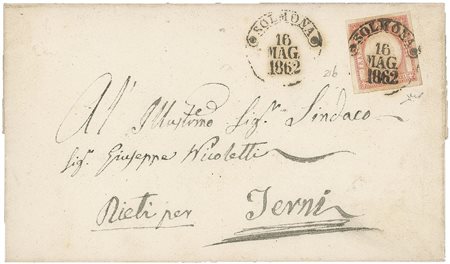 SOLMONA
16
MAG.
1862
SOLMONA
16
MAG.
1862
All' Illustmo Sigr Sindaco
Sigr Giuseppe Nicoletti
Rieti per Terni